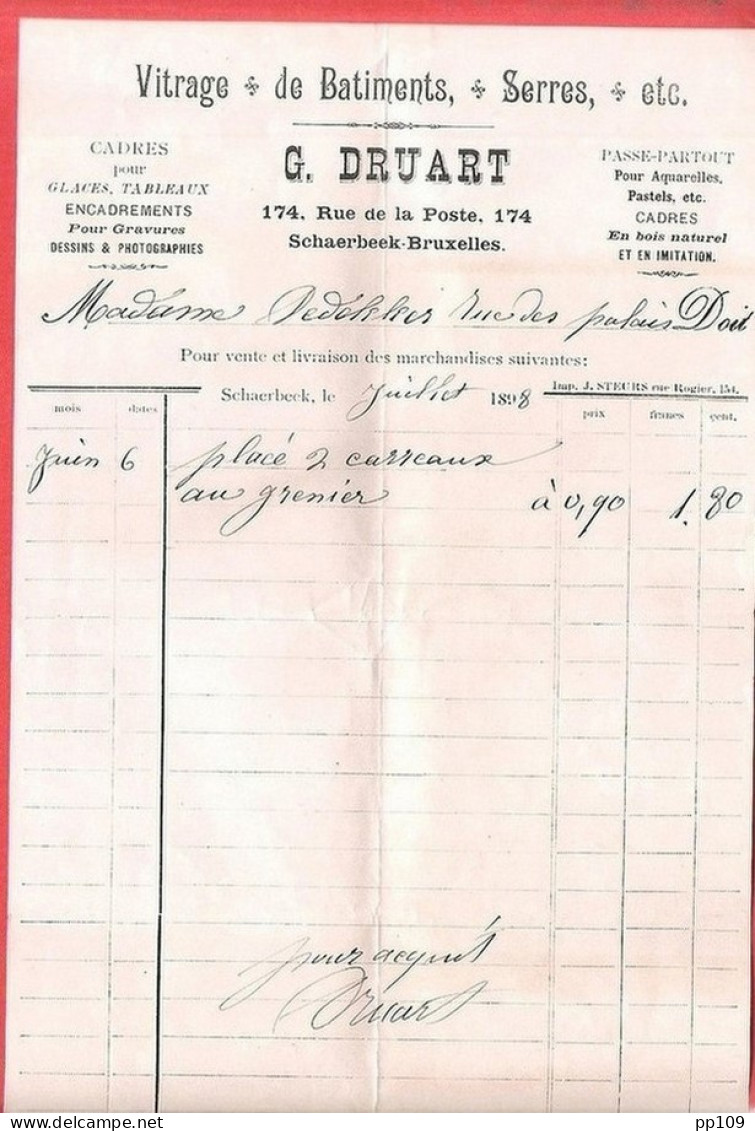 Vitrage de Batiments, Serres, etc.
CADRES
pour
GLACES, TABLEAUX
ENCADREMENTS
Pour Gravures
DESSINS & PHOTOGRAPHIES
G. DRUART
174, Rue de la Poste, 174
Schaerbeek-Bruxelles.
PASSE-PARTOUT
Pour Aquarelles,
Pastels, etc.
CADRES
En bois naturel
ET EN IMITATION.
Madame Dedekker rue des palais Doit
Pour vente et livraison des marchandises suivantes:
Schaerbeek, le Juillet 1898
Imp. J. STEURS rue Rogier, 154.
mois dates prix francs cent.
Juin 6 placé 2 carreaux
au grenier à 0,90 1.80
pour acquit
Druart
pp109